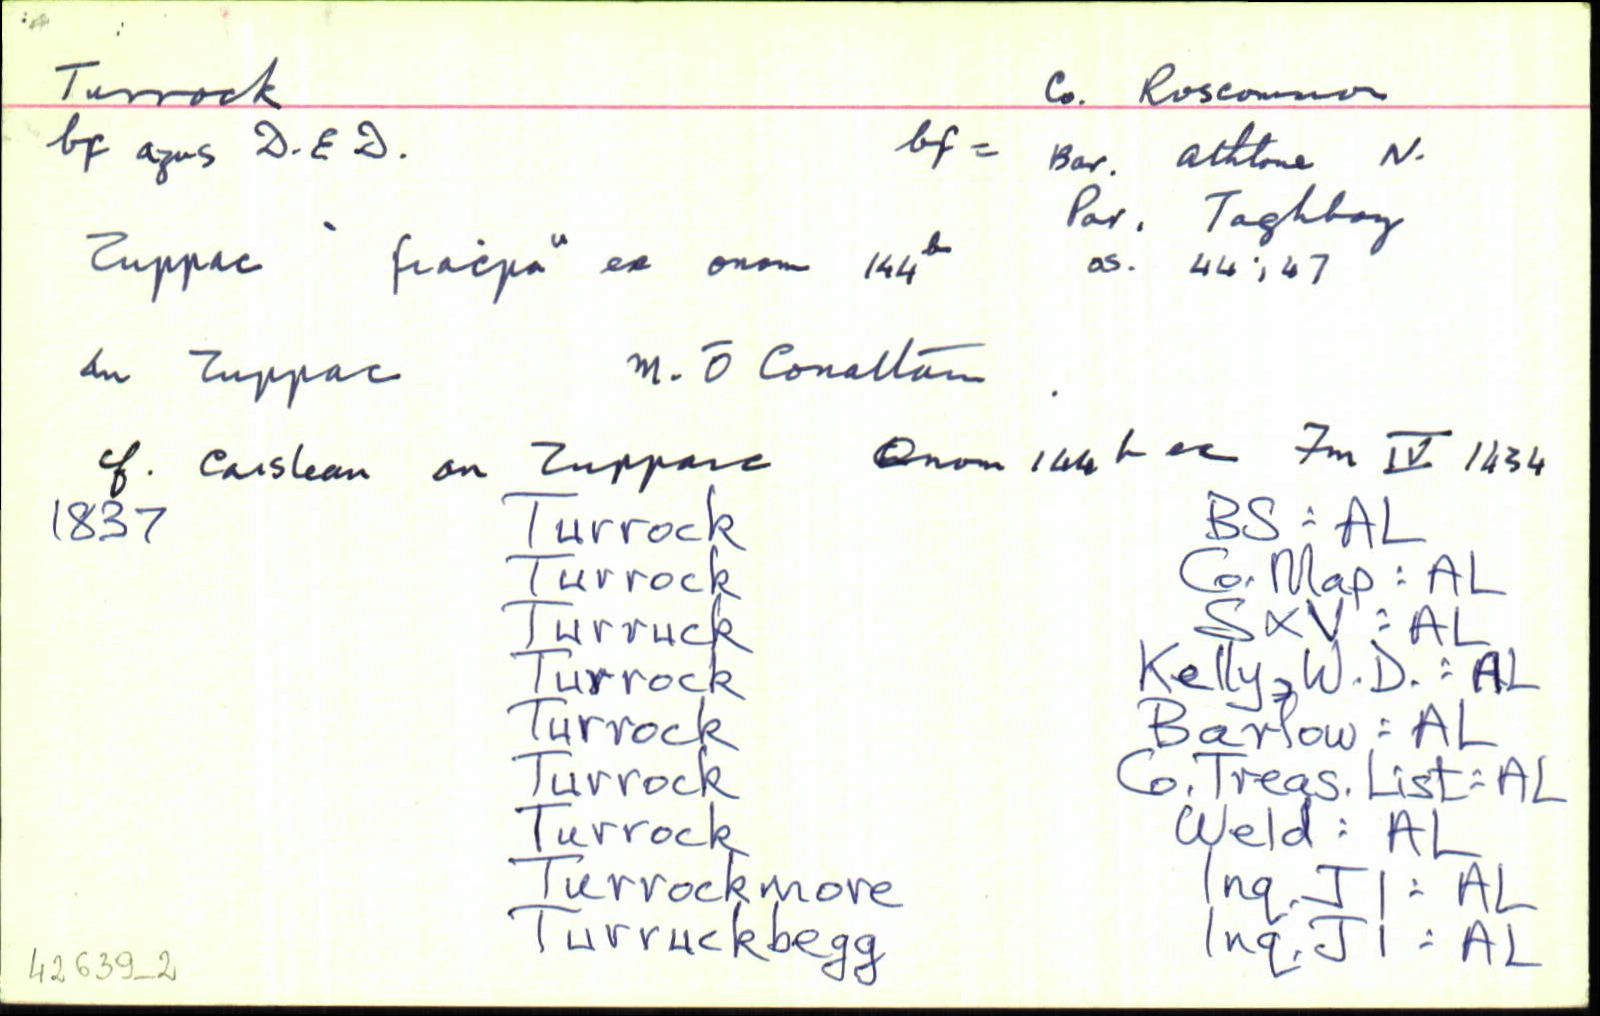 Turrock Co. Roscommon
bf agus D.E.D. bf = Bar. Athlone N.
Par. Taghboy
Turrac "fiacra" ex onom 144b os. 44; 47
An Turrac M. Ó Conalláin
cf. Caislean an Turraic Onom 144 b ex Fm IV 1434
1837 Turrock BS : AL
Turrock Co. Map : AL
Turruck SXV : AL
Turrock Kelly, W.D. : AL
Turrock Barlow : AL
Turrock Co. Treas. List : AL
Turrock Weld : AL
Turrockmore Inq. J I : AL
Turruckbegg Inq. J I : AL
42639_2